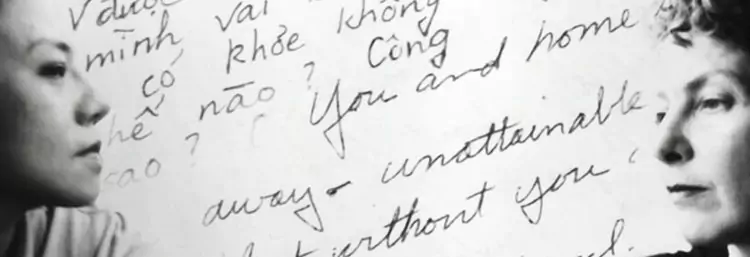 được
mình vai
có khỏe không
nào ? Công
sao ?
You and home
away - unattainable,
without you